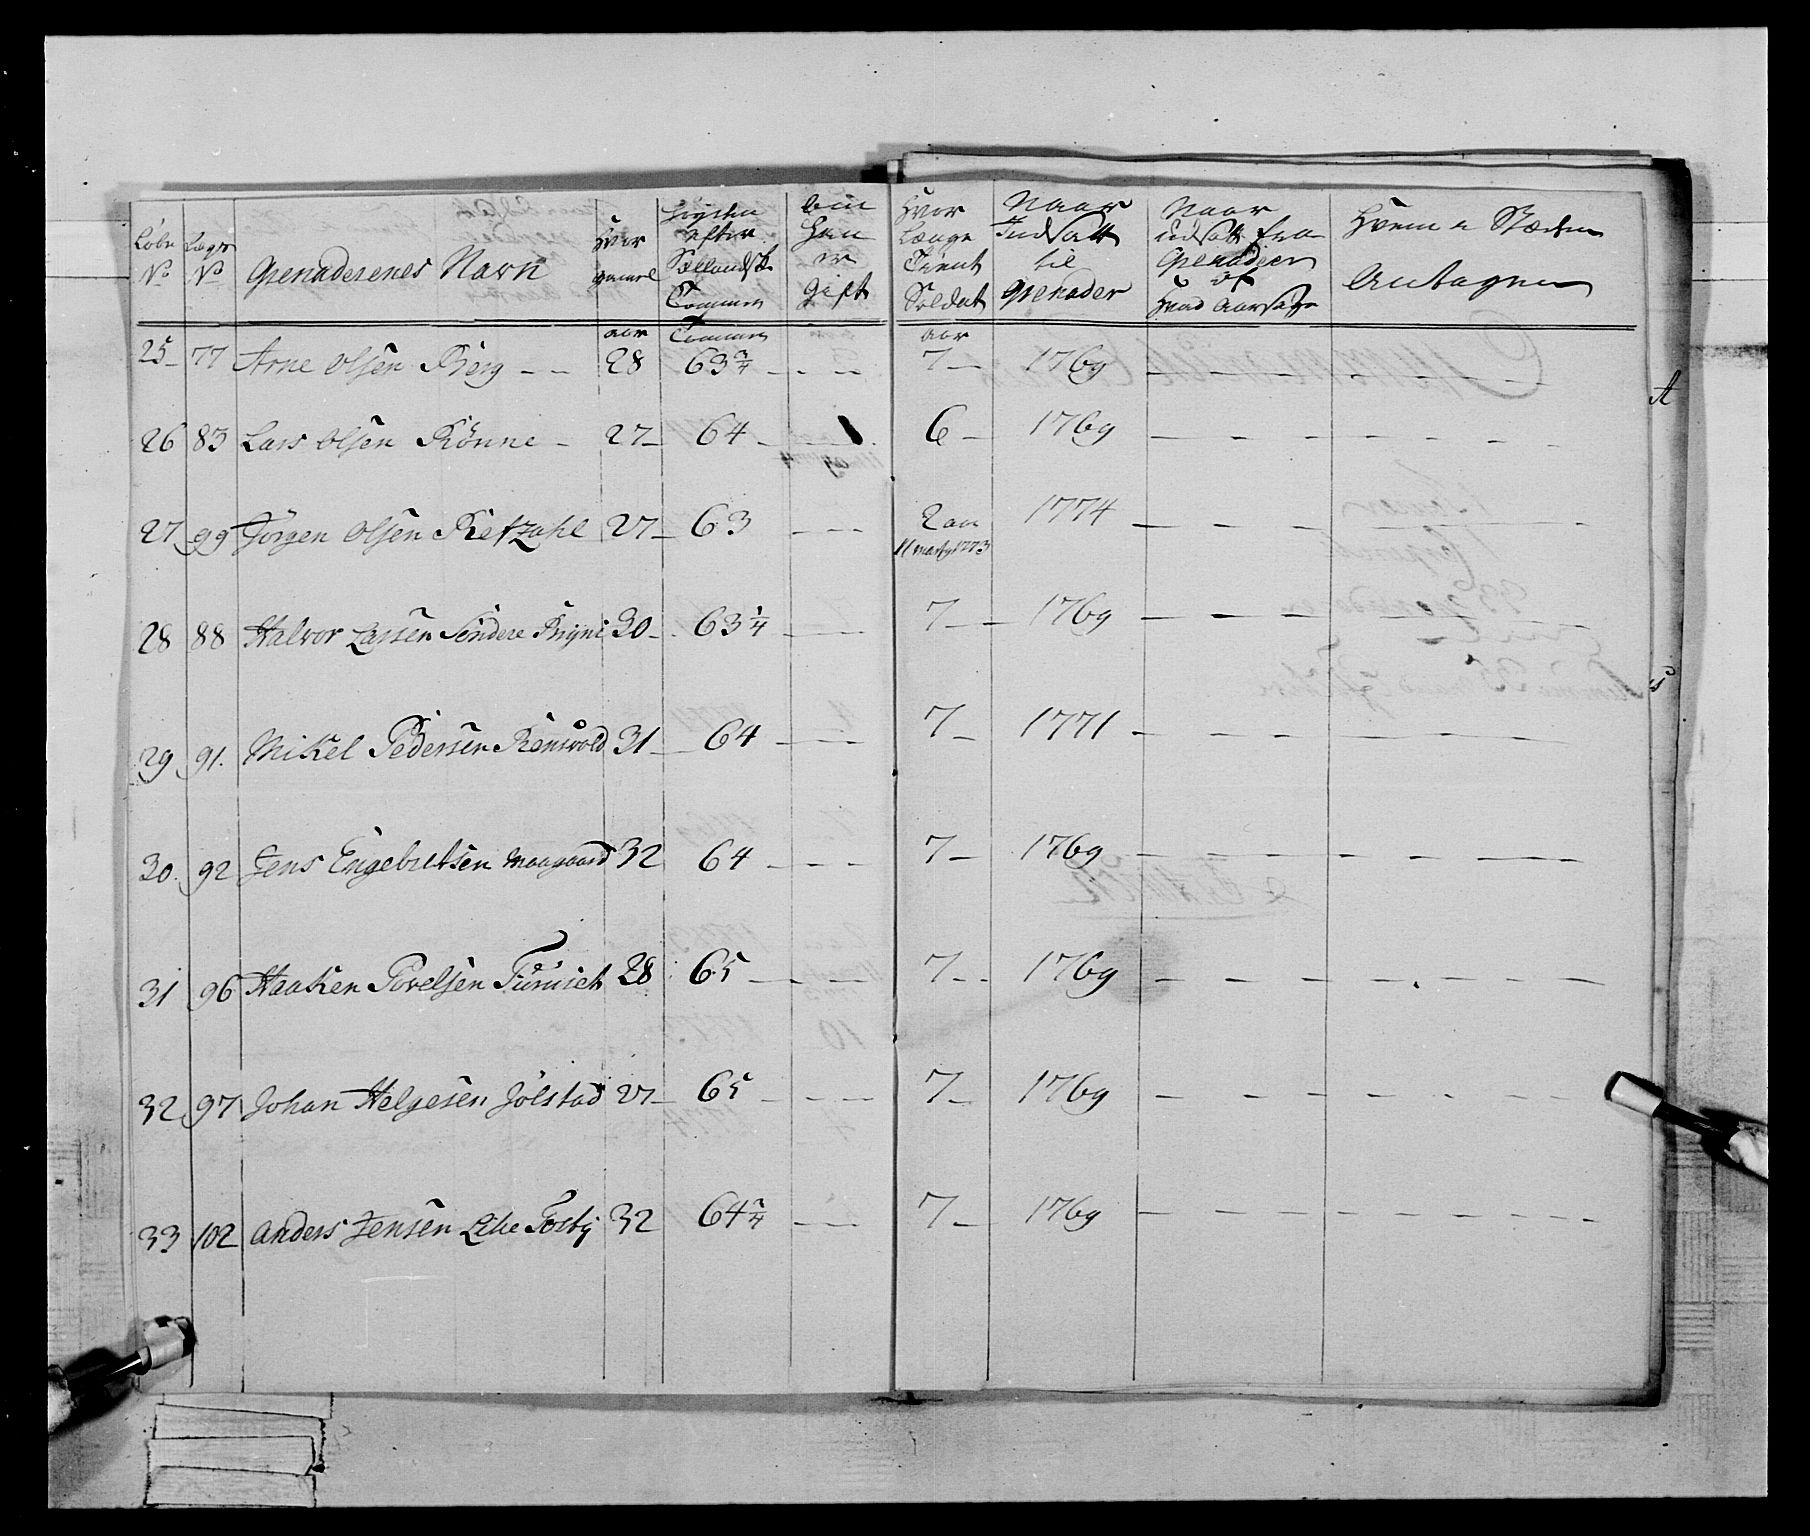 Løbe No
Lægs No
Grenaderenes Navn
Hvor gamel
Høyden efter Sællandsk Tommer
Om Han er Gift
Hvor Længe Tient Soldat
Naar Indsatt til Grenader
Naar udsatt fra Grenadeer of Hvad Aarsage
Hvem i Stæden Antagen
aar Tommer aar
25 77 Arne Olsen Berg - - 28 63 3/4 - - - 7 - 1769 - - - -
26 83 Lars Olsen Rønne - 27 - 64 - - 6 - 1769 - - - -
27 99 Jørgen Olsen 27 - 63 - - 2 aar 1774 - - - -
11 marty 1773
28 88 Halvor Larsen Søndere 30 - 63 1/4 - - 7 - 1769 - - - -
29 91. Mikel Pedersen 31 - 64 - - 7 - 1771 - - - -
30. 92 Jens Engebretsen Moagaard 32 64 - - - 7 - 1769 - - - -
31 96 Haaken Povelsen 28 65 - - - 7 - 1769 - - - -
32 97 Johan Helgesen Jølstad 27 - 65 - - - 7 - 1769 - - - -
33 102 Anders Jensen Lille Foesby 32 64 3/4 - - 7 - 1769 - - - -